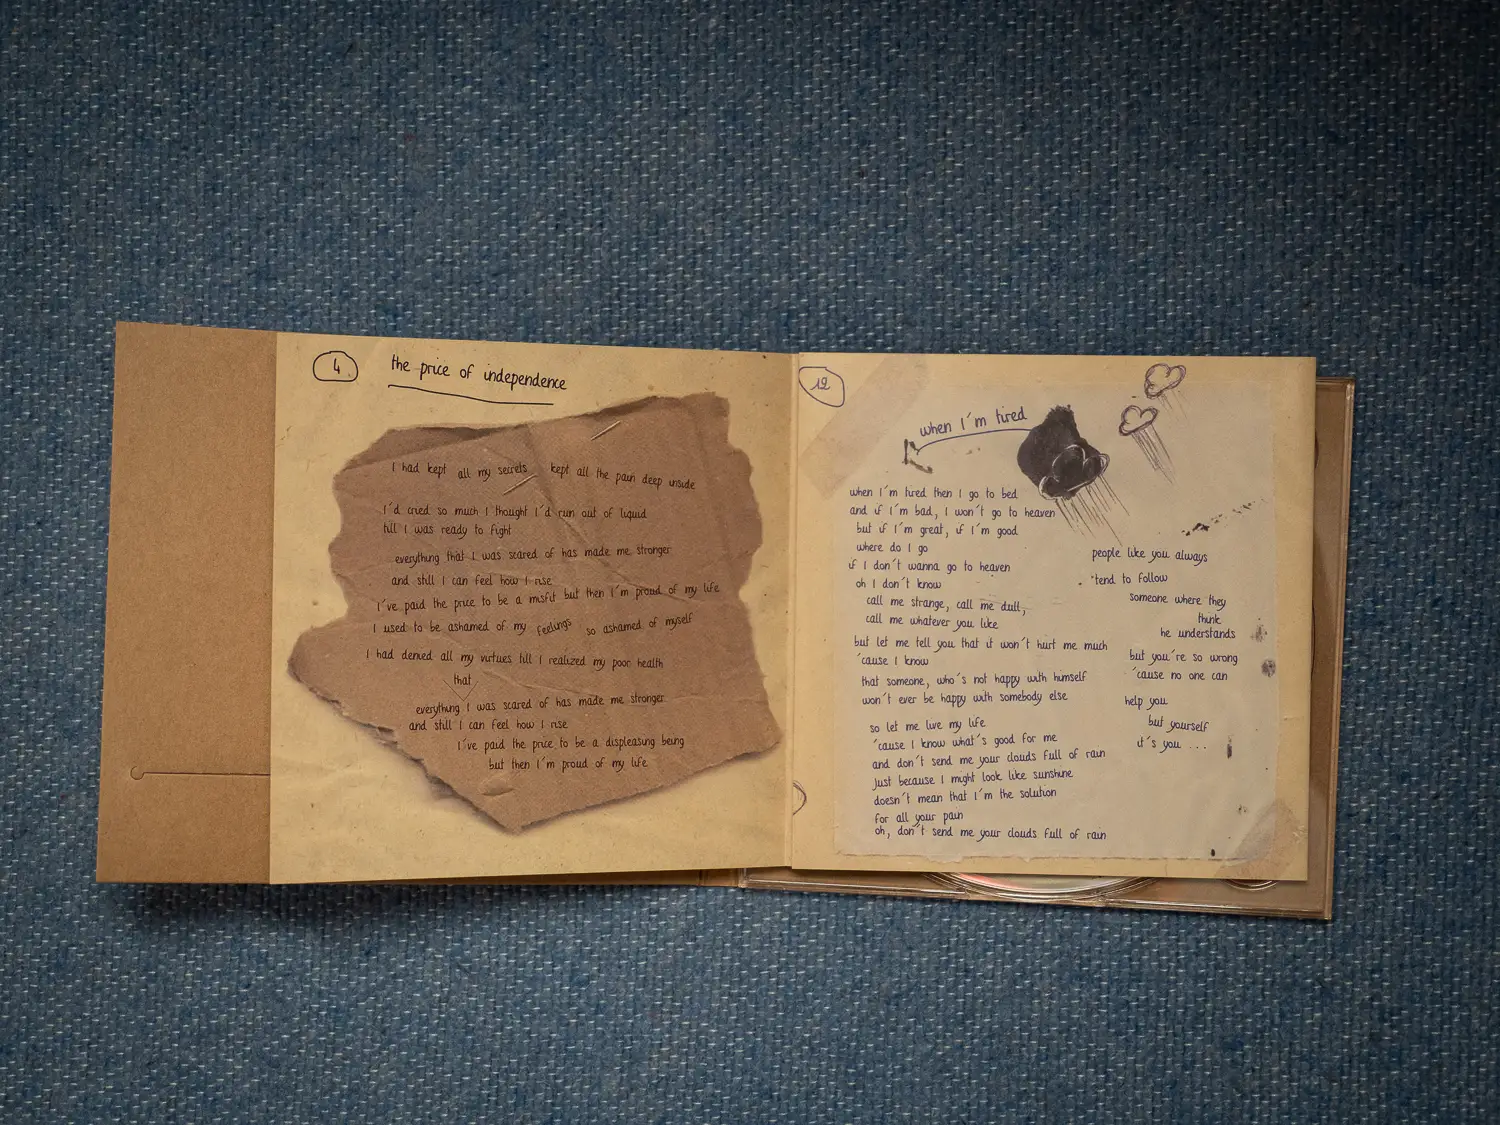 4
the price of independence
I had kept all my secrets kept all the pain deep inside
I'd cried so much I thought I'd run out of liquid
till I was ready to fight
everything that I was scared of has made me stronger
and still I can feel how I rise
I've paid the price to be a misfit but then I'm proud of my life
I used to be ashamed of my feelings so ashamed of myself
I had denied all my virtues till I realized my poor health
that
everything I was scared of has made me stronger
and still I can feel how I rise
I've paid the price to be a displeasing being
but then I'm proud of my life
12
when I'm tired
when I'm tired then I go to bed
and if I'm bad, I won't go to heaven
but if I'm great, if I'm good
where do I go
if I don't wanna go to heaven
oh I don't know
call me strange, call me dull,
call me whatever you like
but let me tell you that it won't hurt me much
'cause I know
that someone, who's not happy with himself
won't ever be happy with somebody else
so let me live my life
'cause I know what's good for me
and don't send me your clouds full of rain
just because I might look like sunshine
doesn't mean that I'm the solution
for all your pain
oh, don't send me your clouds full of rain
people like you always
tend to follow
someone where they
think
he understands
but you're so wrong
'cause no one can
help you
but yourself
it's you ...